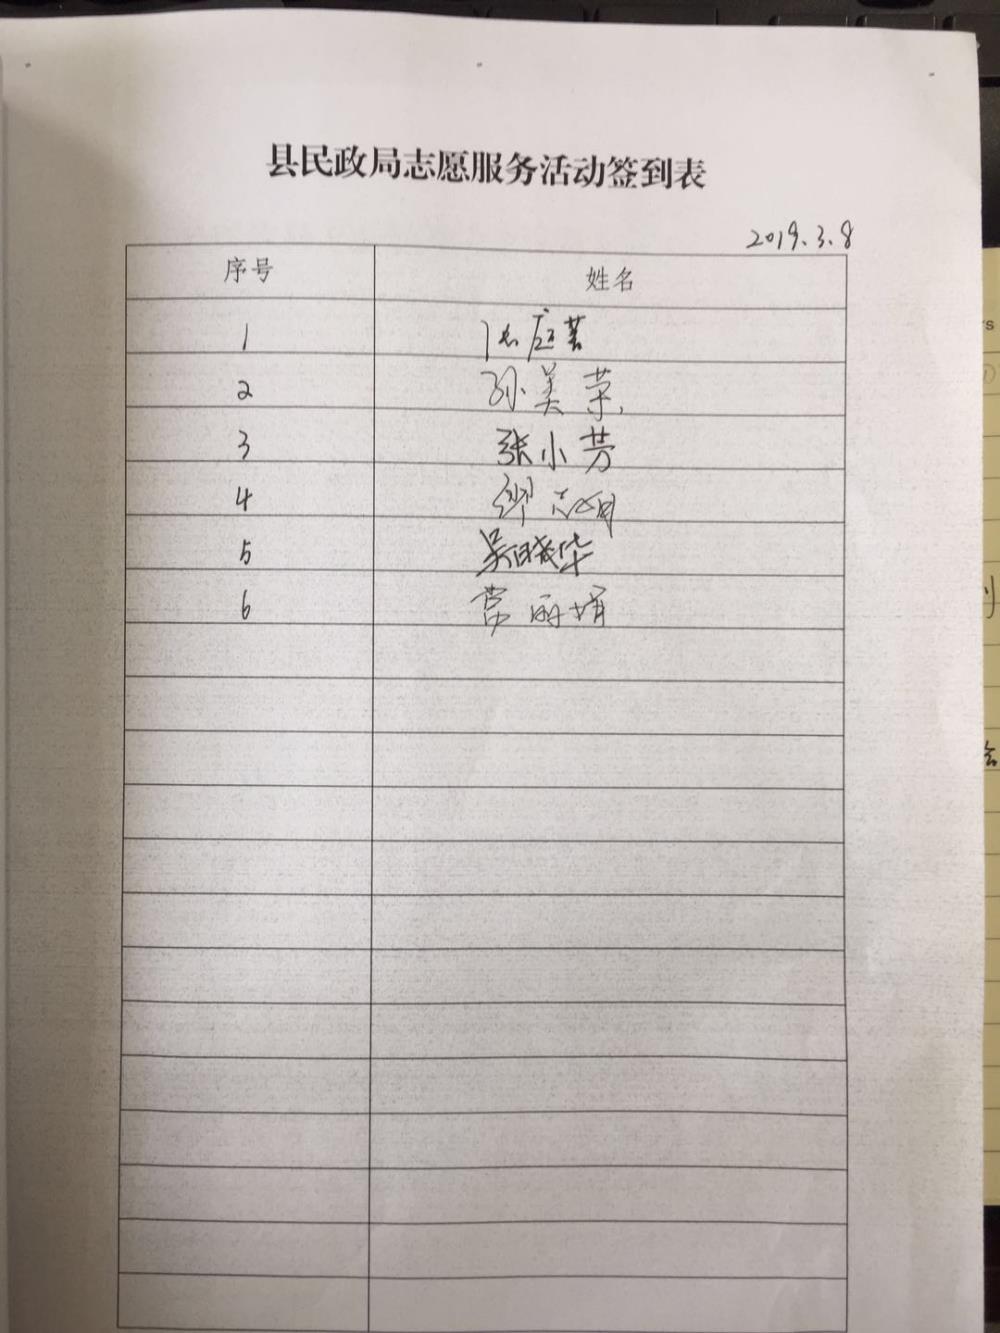 县民政局志愿服务活动签到表
2019.3.8
序号 姓名
1
2 孙美荣
3 张小芳
4
5 吴晓华
6 常丽娟